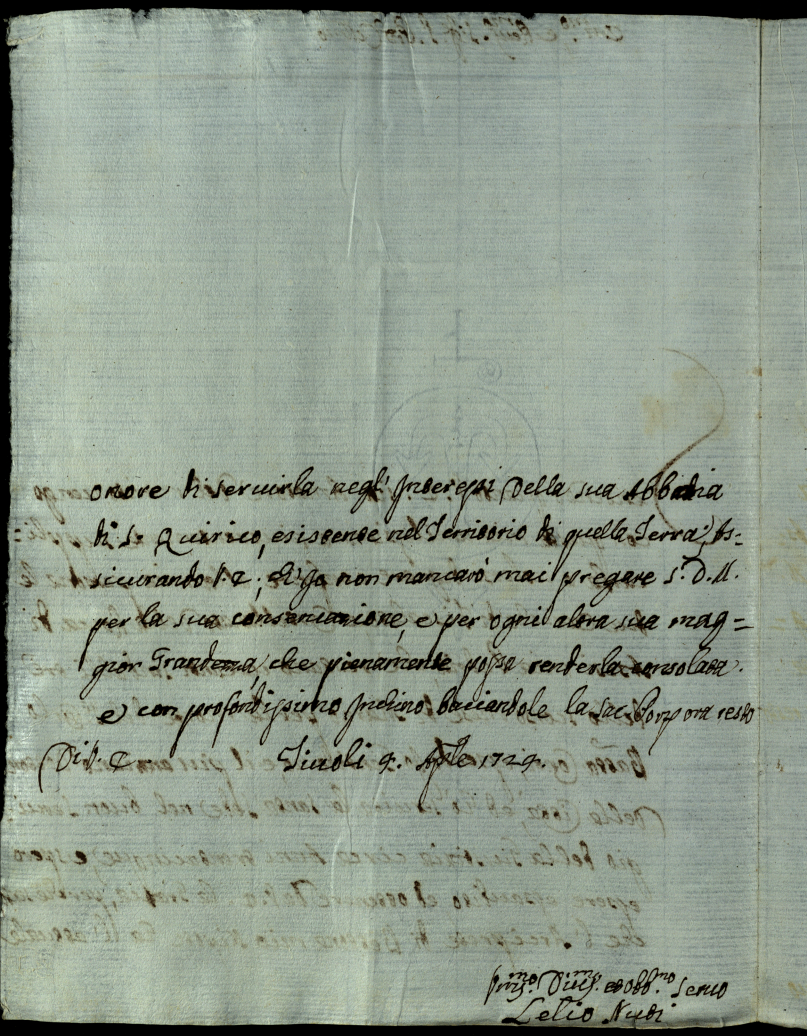 onore di seruirla negl' Interessi della sua Abbadia
di S. Quirico, esistente nel Territorio di quella Terra, As=
sicurando V. E., ch'Io non mancarò mai pregare S. D. M.
per la sua conseruazione, e per ogni altra sua mag=
gior Grandezza, che pienamente possa renderla consolata.
e con profondissimo Inchino baciandole la Sac. Porpora resto
Di V. E. Tiuoli 4. Aple 1724.
Vmo. Diuo. et Obb.mo Seruo
Lelio Nudi